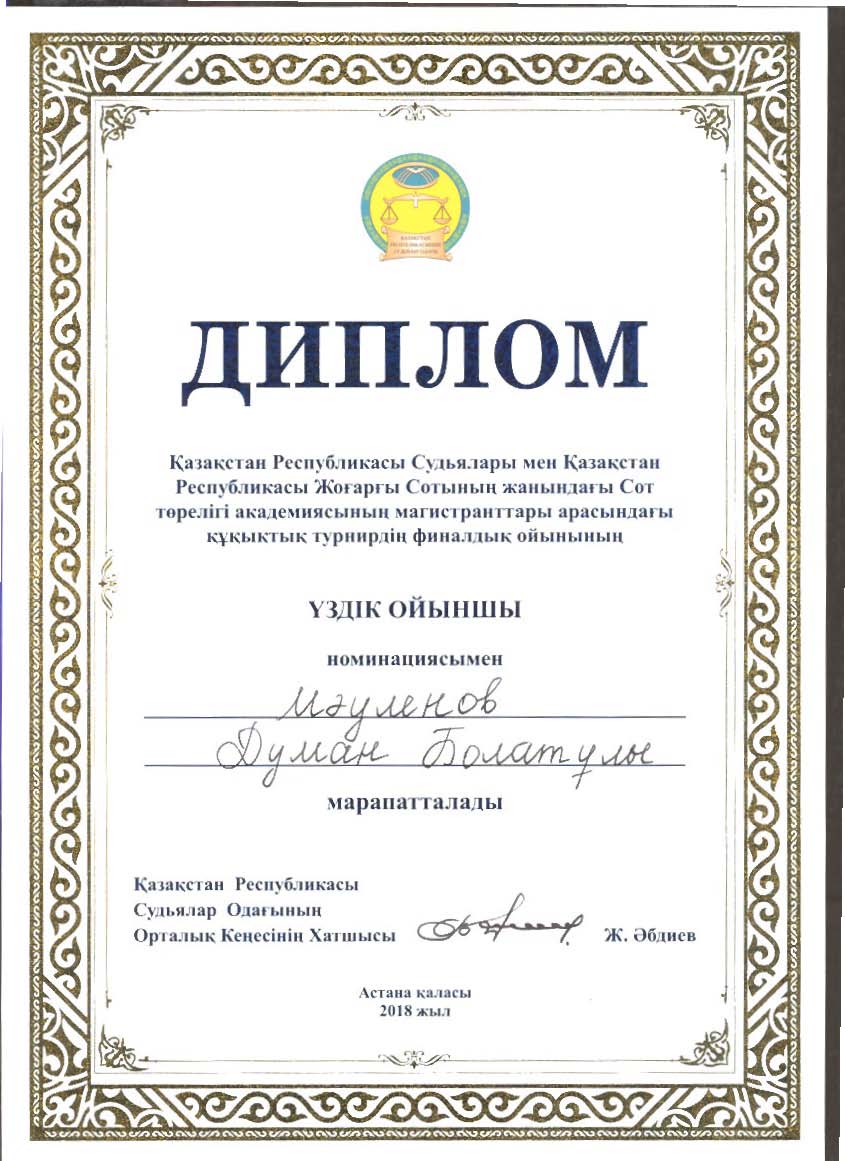 ҚАЗАҚСТАН
РЕСПУБЛИКАСЫНЫҢ
СУДЬЯЛАР ОДАҒЫ
ДИПЛОМ
Қазақстан Республикасы Судьялары мен Қазақстан
Республикасы Жоғарғы Сотының жанындағы Сот
төрелігі академиясының магистранттары арасындағы
құқықтық турнирдің финалдық ойынының
ҮЗДІК ОЙЫНШЫ
номинациясымен
Мәуленов
Думан Болатұлы
марапатталады
Қазақстан Республикасы
Судьялар Одағының
Орталық Кеңесінің Хатшысы Ж. Әбдиев
Астана қаласы
2018 жыл